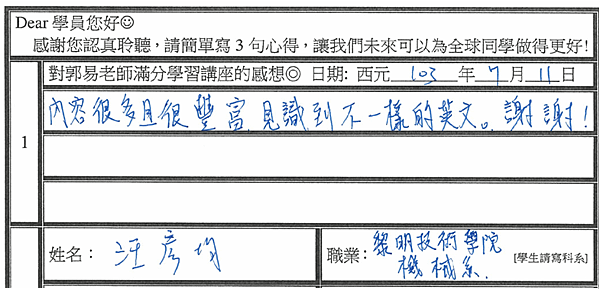 Dear 學員您好☺
感謝您認真聆聽，請簡單寫 3 句心得，讓我們未來可以為全球同學做得更好!
對郭易老師滿分學習講座的感想◎ 日期: 西元 103 年 7 月 11 日
1
內容很多且很豐富,見識到不一樣的英文。謝謝!
姓名： 汪彥均
職業： 黎明技術學院
機械系.
[學生請寫科系]